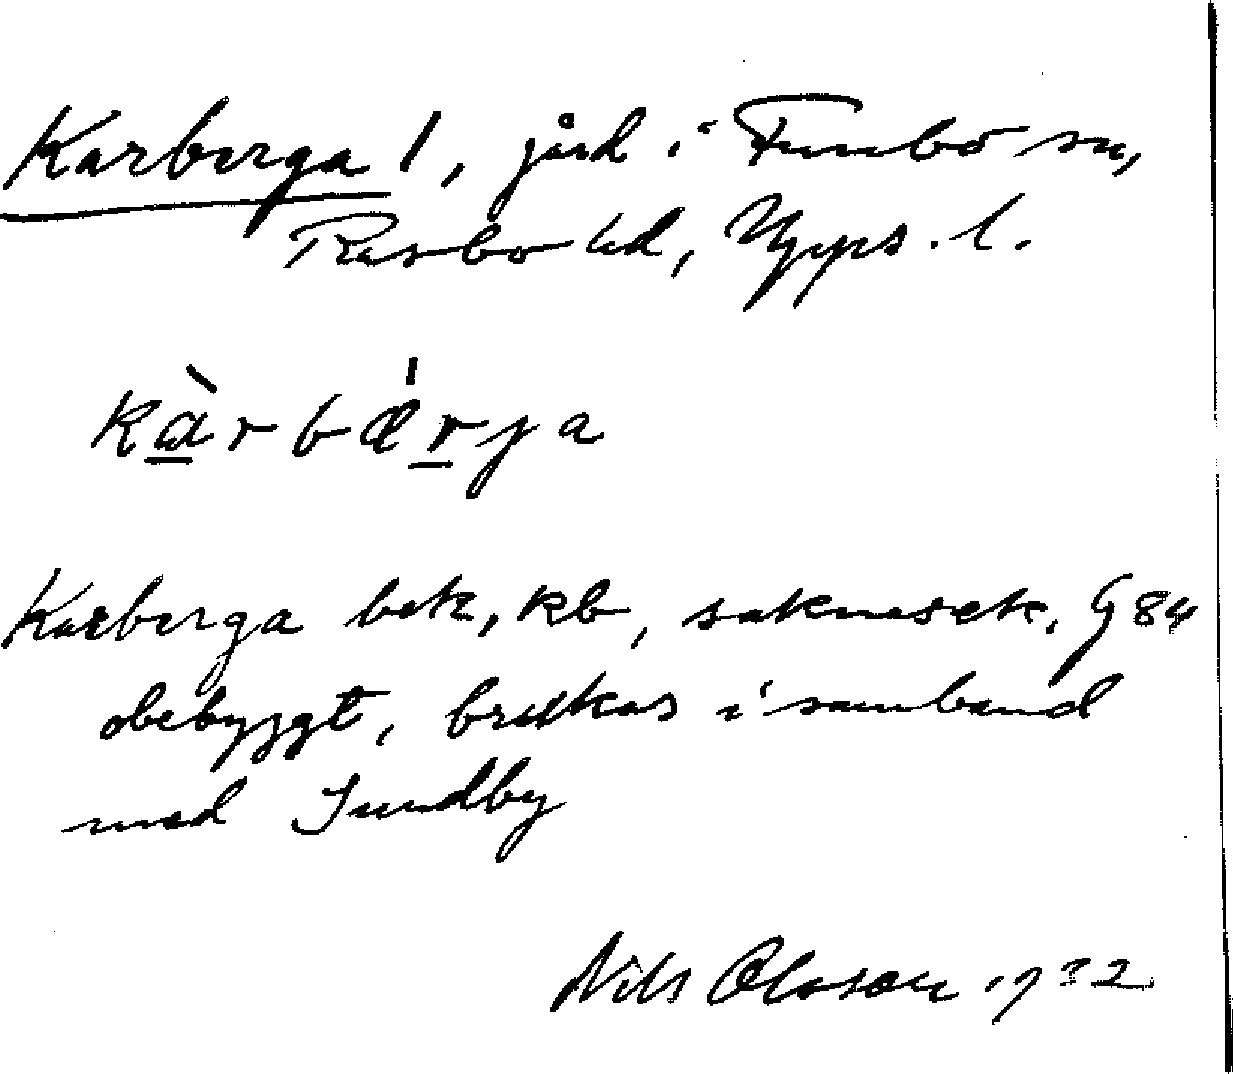 Karberga 1, jård i Funbo sn,
Rasbo hd, Upps. l.
kàrbǽrja
Karberga bek, kb, saknas ek, G 84
obebyggt, brukas i samband
med Sundby
Nils Olsson 1932